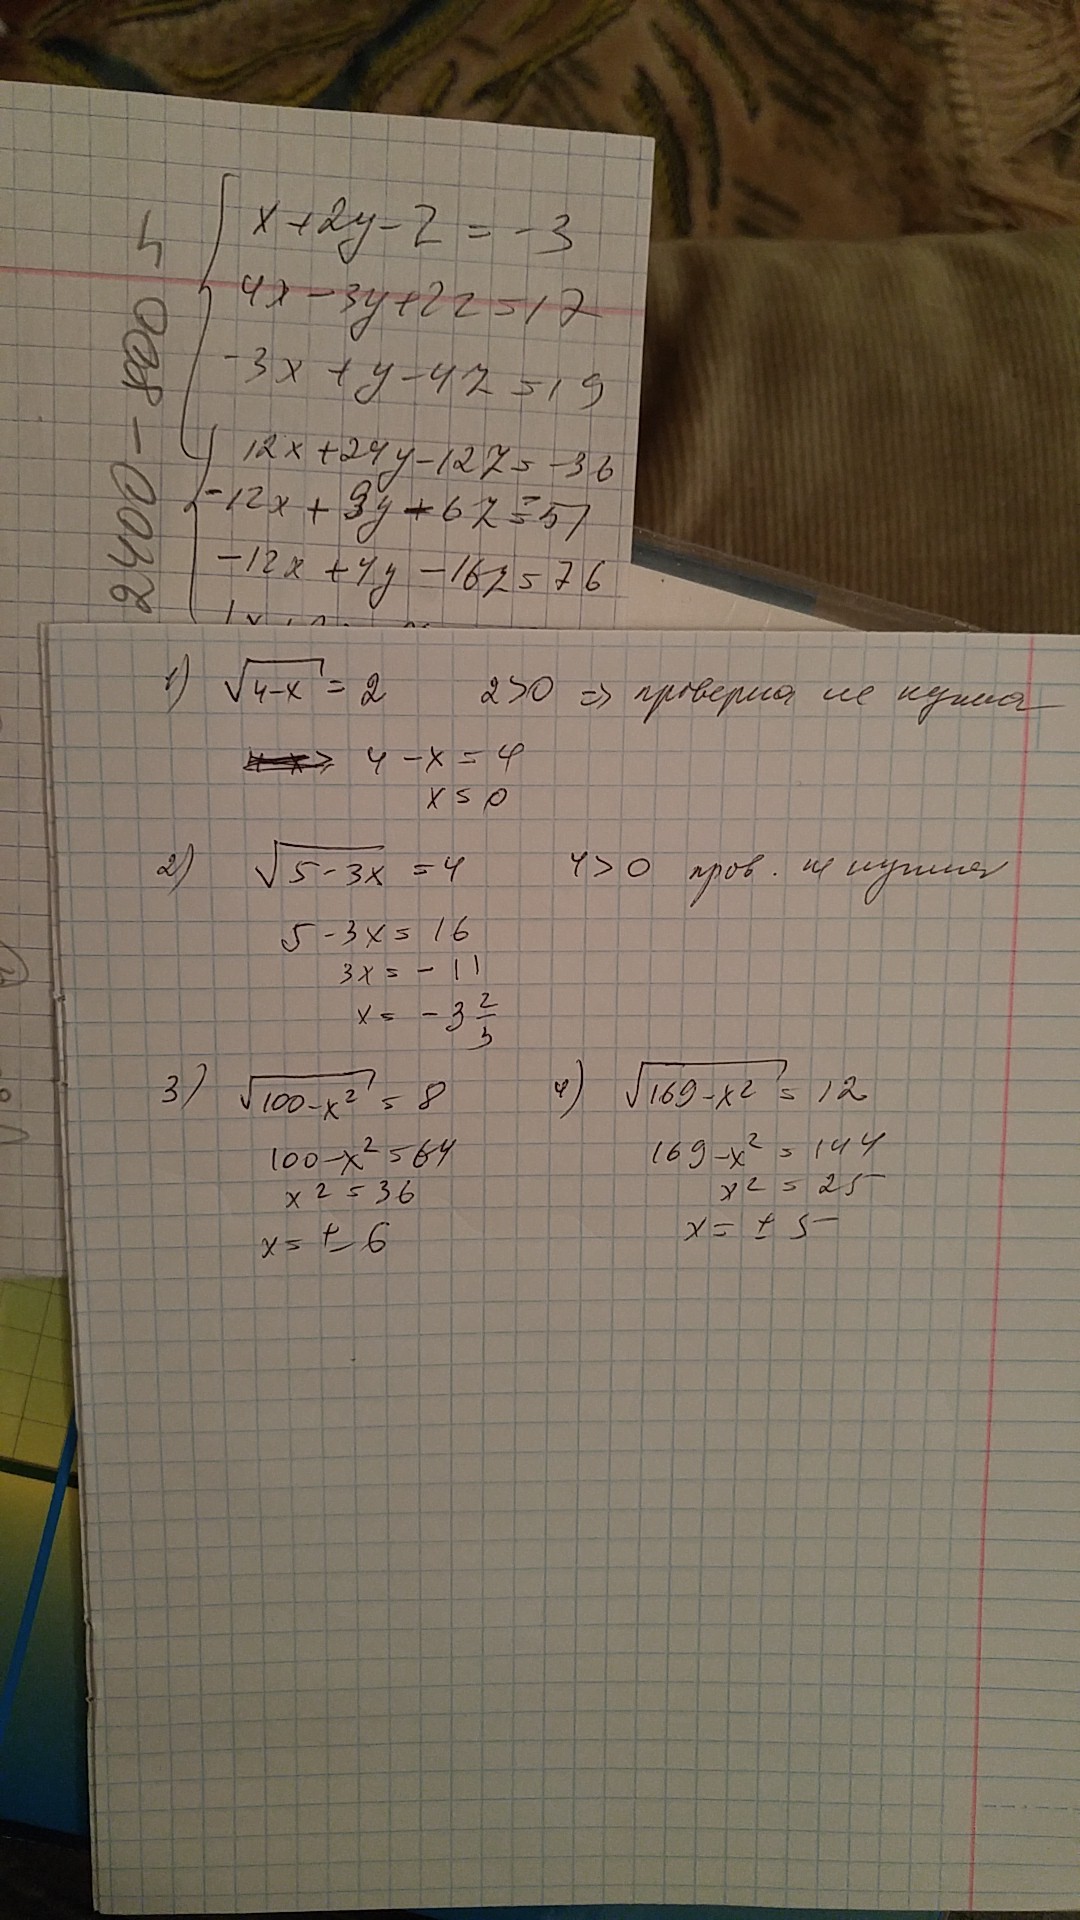 2400 - 800 4
x + 2y - z = -3
4x - 3y + 2z = 17
-3x + y - 4z = 19
12x + 24y - 12z = -36
-12x + 9y - 6z = -51
-12x + 4y - 16z = 76
1) √4-x = 2 2>0 => проверка не нужна
4 - x = 4
x = 0
2) √5-3x = 4 4>0 пров. не нужна
5 - 3x = 16
3x = -11
x = -3 2/3
3) √100-x² = 8 4) √169-x² = 12
100-x² = 64 169-x² = 144
x² = 36 x² = 25
x = ± 6 x = ± 5